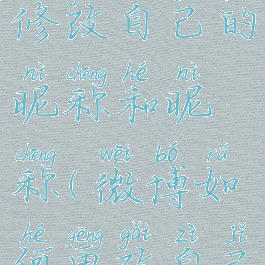 修改自己的
nì chēng hé nì
昵称和昵
chēng wēi bó rú
称(微博如
hé gēng gǎi zì jǐ
何更改自己